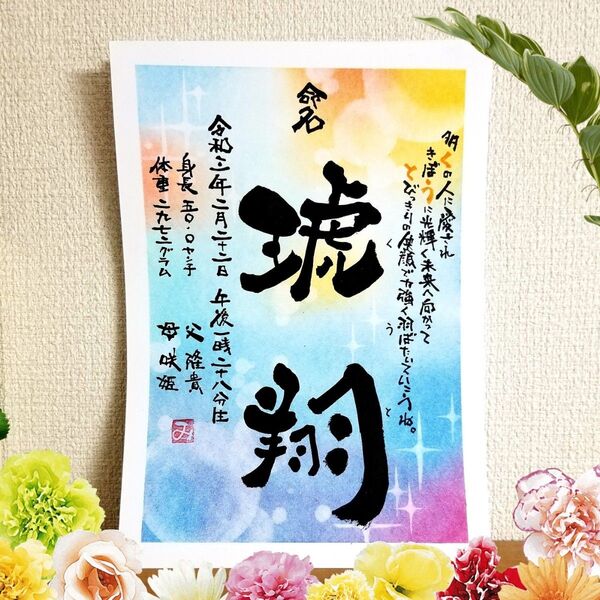 多くの人に愛され
きぼうに光輝く未来へ向かって
とびっきりの笑顔で力強く羽ばたいていこうね。
命名
琥翔
くうと
令和三年二月二十二日 午後一時二十八分生
身長 五〇.〇センチ
体重 二九七二グラム
父 隆貴
母 咲姫